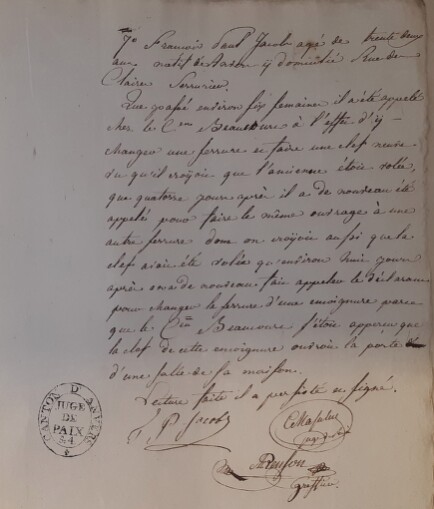 7.o François Paul Jacobs agé de trente deux
ans natif de Anvers y domicilié Rue de
Claire Serrurier
Que passé environ six semaines il a été appelé
chez le Cen Beaucoure à l'effet d'y
changer une serrure et faire une clef neuve
vu qu'il croyoit que l'ancienne étoit volée,
que quatorze jours après il a de nouveau été
appelé pour faire le même ouvrage à une
autre serrure dont on croyoit aussi que la
clef avoit été volée qu'environ huit jours
après on a de nouveau fait appeler le déclarant
pour changer la serrure d'une encoignure parce
que le Cen Beaucoure s'étoit apperçu que
la clef de cette encoignure ouvroit la porte
d'une salle de sa maison.
Lecture faite il a persisté et signé.
F P Jacobs
greffier
CANTON D'ANVERS
JUGE
DE
PAIX